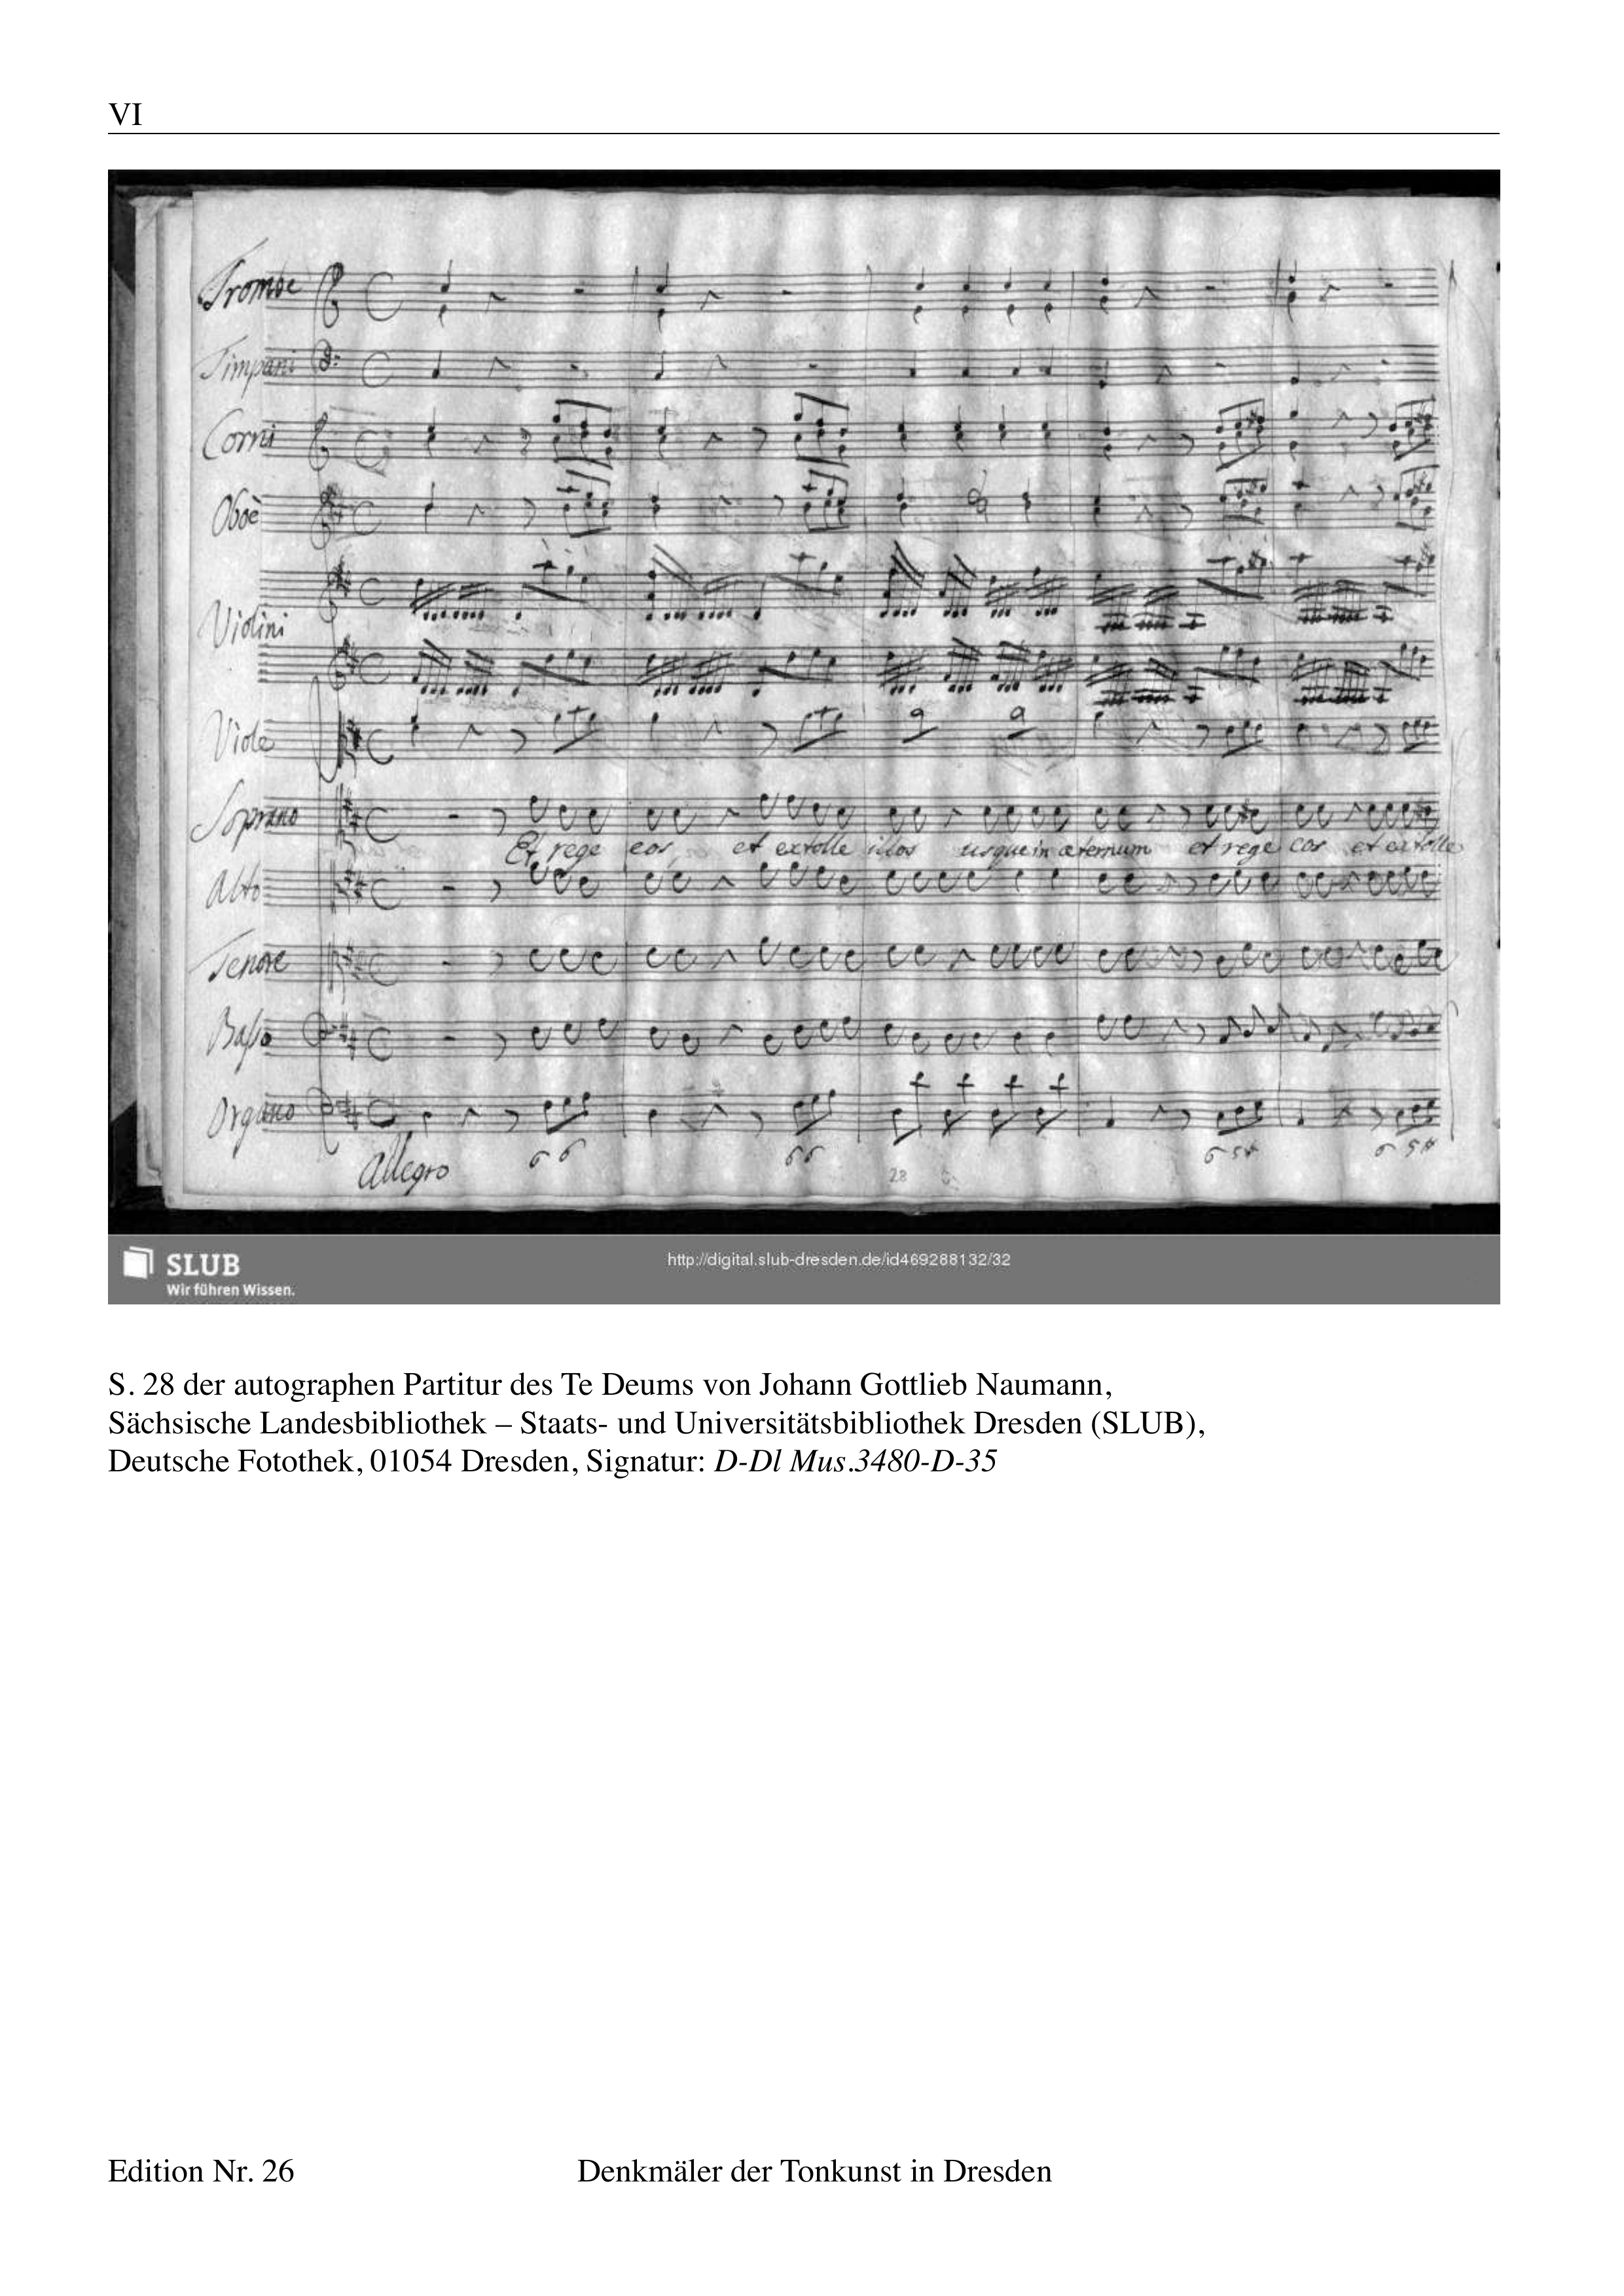 VI
Trombe
Timpani
Corni
Oboè
Violini
Viole
Soprano
Et rege eos, et extolle illos usque in æternum et rege eos et extolle
Alto
Tenore
Basso
Organo
6 6 6 6 6 5# 6 5#
Allegro
28
SLUB
Wir führen Wissen.
http://digital.slub-dresden.de/id469288132/32
S. 28 der autographen Partitur des Te Deums von Johann Gottlieb Naumann,
Sächsische Landesbibliothek – Staats- und Universitätsbibliothek Dresden (SLUB),
Deutsche Fotothek, 01054 Dresden, Signatur: D-Dl Mus.3480-D-35
Edition Nr. 26 Denkmäler der Tonkunst in Dresden